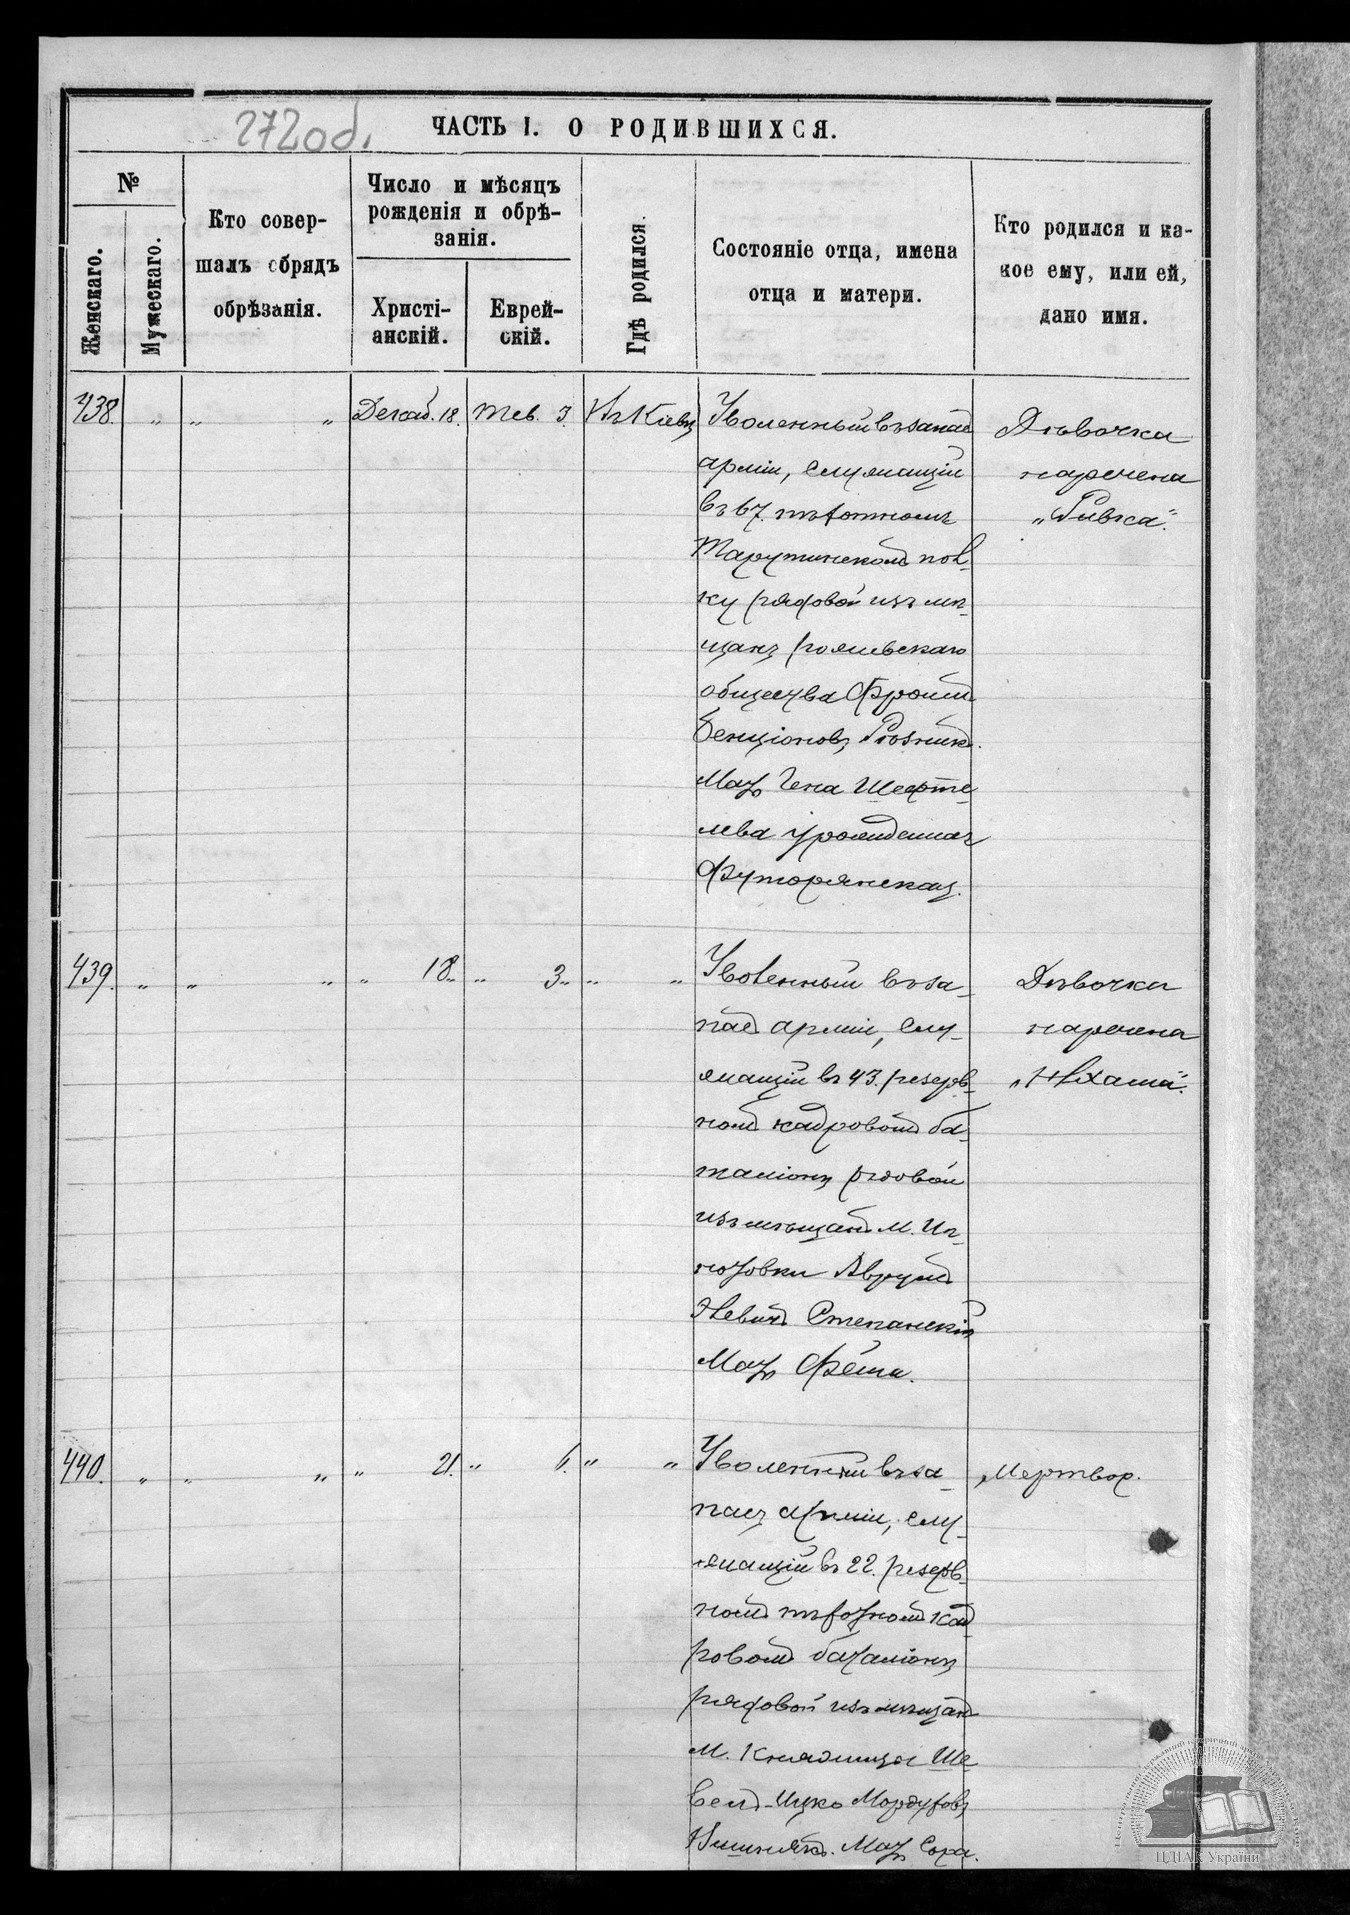 272об.
ЧАСТЬ I. О РОДИВШИХСЯ.
№
Женскаго.
Мужескаго.
Кто совер-
шалъ обрядъ
обрѣзанія.
Число и мѣсяцъ
рожденія и обрѣ-
занія.
Христі-
анскій.
Еврей-
скій.
Гдѣ родился.
Состояніе отца, имена
отца и матери.
Кто родился и ка-
кое ему, или ей,
дано имя.
438. „ „ „ Декаб. 18. Тев. 3. Въ Кіевѣ
Уволенный въ запас
арміи, служащій
въ 67. пѣхотномъ
Тарутинскомъ пол-
ку рядовой изъ мѣ-
щанъ
общества Фроимъ
Бенціоновъ Рѣзникъ.
Мать Гена Шефте-
лева урожденная
Футорянская.
Дѣвочка
наречена
„Ривка“.
439. „ „ „ „ 18. „ 3. „ „
Уволенный въ за-
пасъ арміи, слу-
жащій въ 43. резерв-
номъ кадровомъ ба-
таліонѣ рядовой
изъ мѣщанъ м. Иг-
натовки Аврумъ
Степанскій
Мать Фейга.
Дѣвочка
наречена
„Нехама“.
440. „ „ „ „ 21. „ 6. „ „
Уволенный въ за-
пасъ арміи, слу-
жащій въ 22. резерв-
номъ пѣхотномъ кад-
ровомъ баталіонѣ
рядовой изъ мѣщанъ
м. Ше-
вель-Ицко Мордухов
Вишнякъ. Мать Сура.
Мертвор.
ЦДІАК України